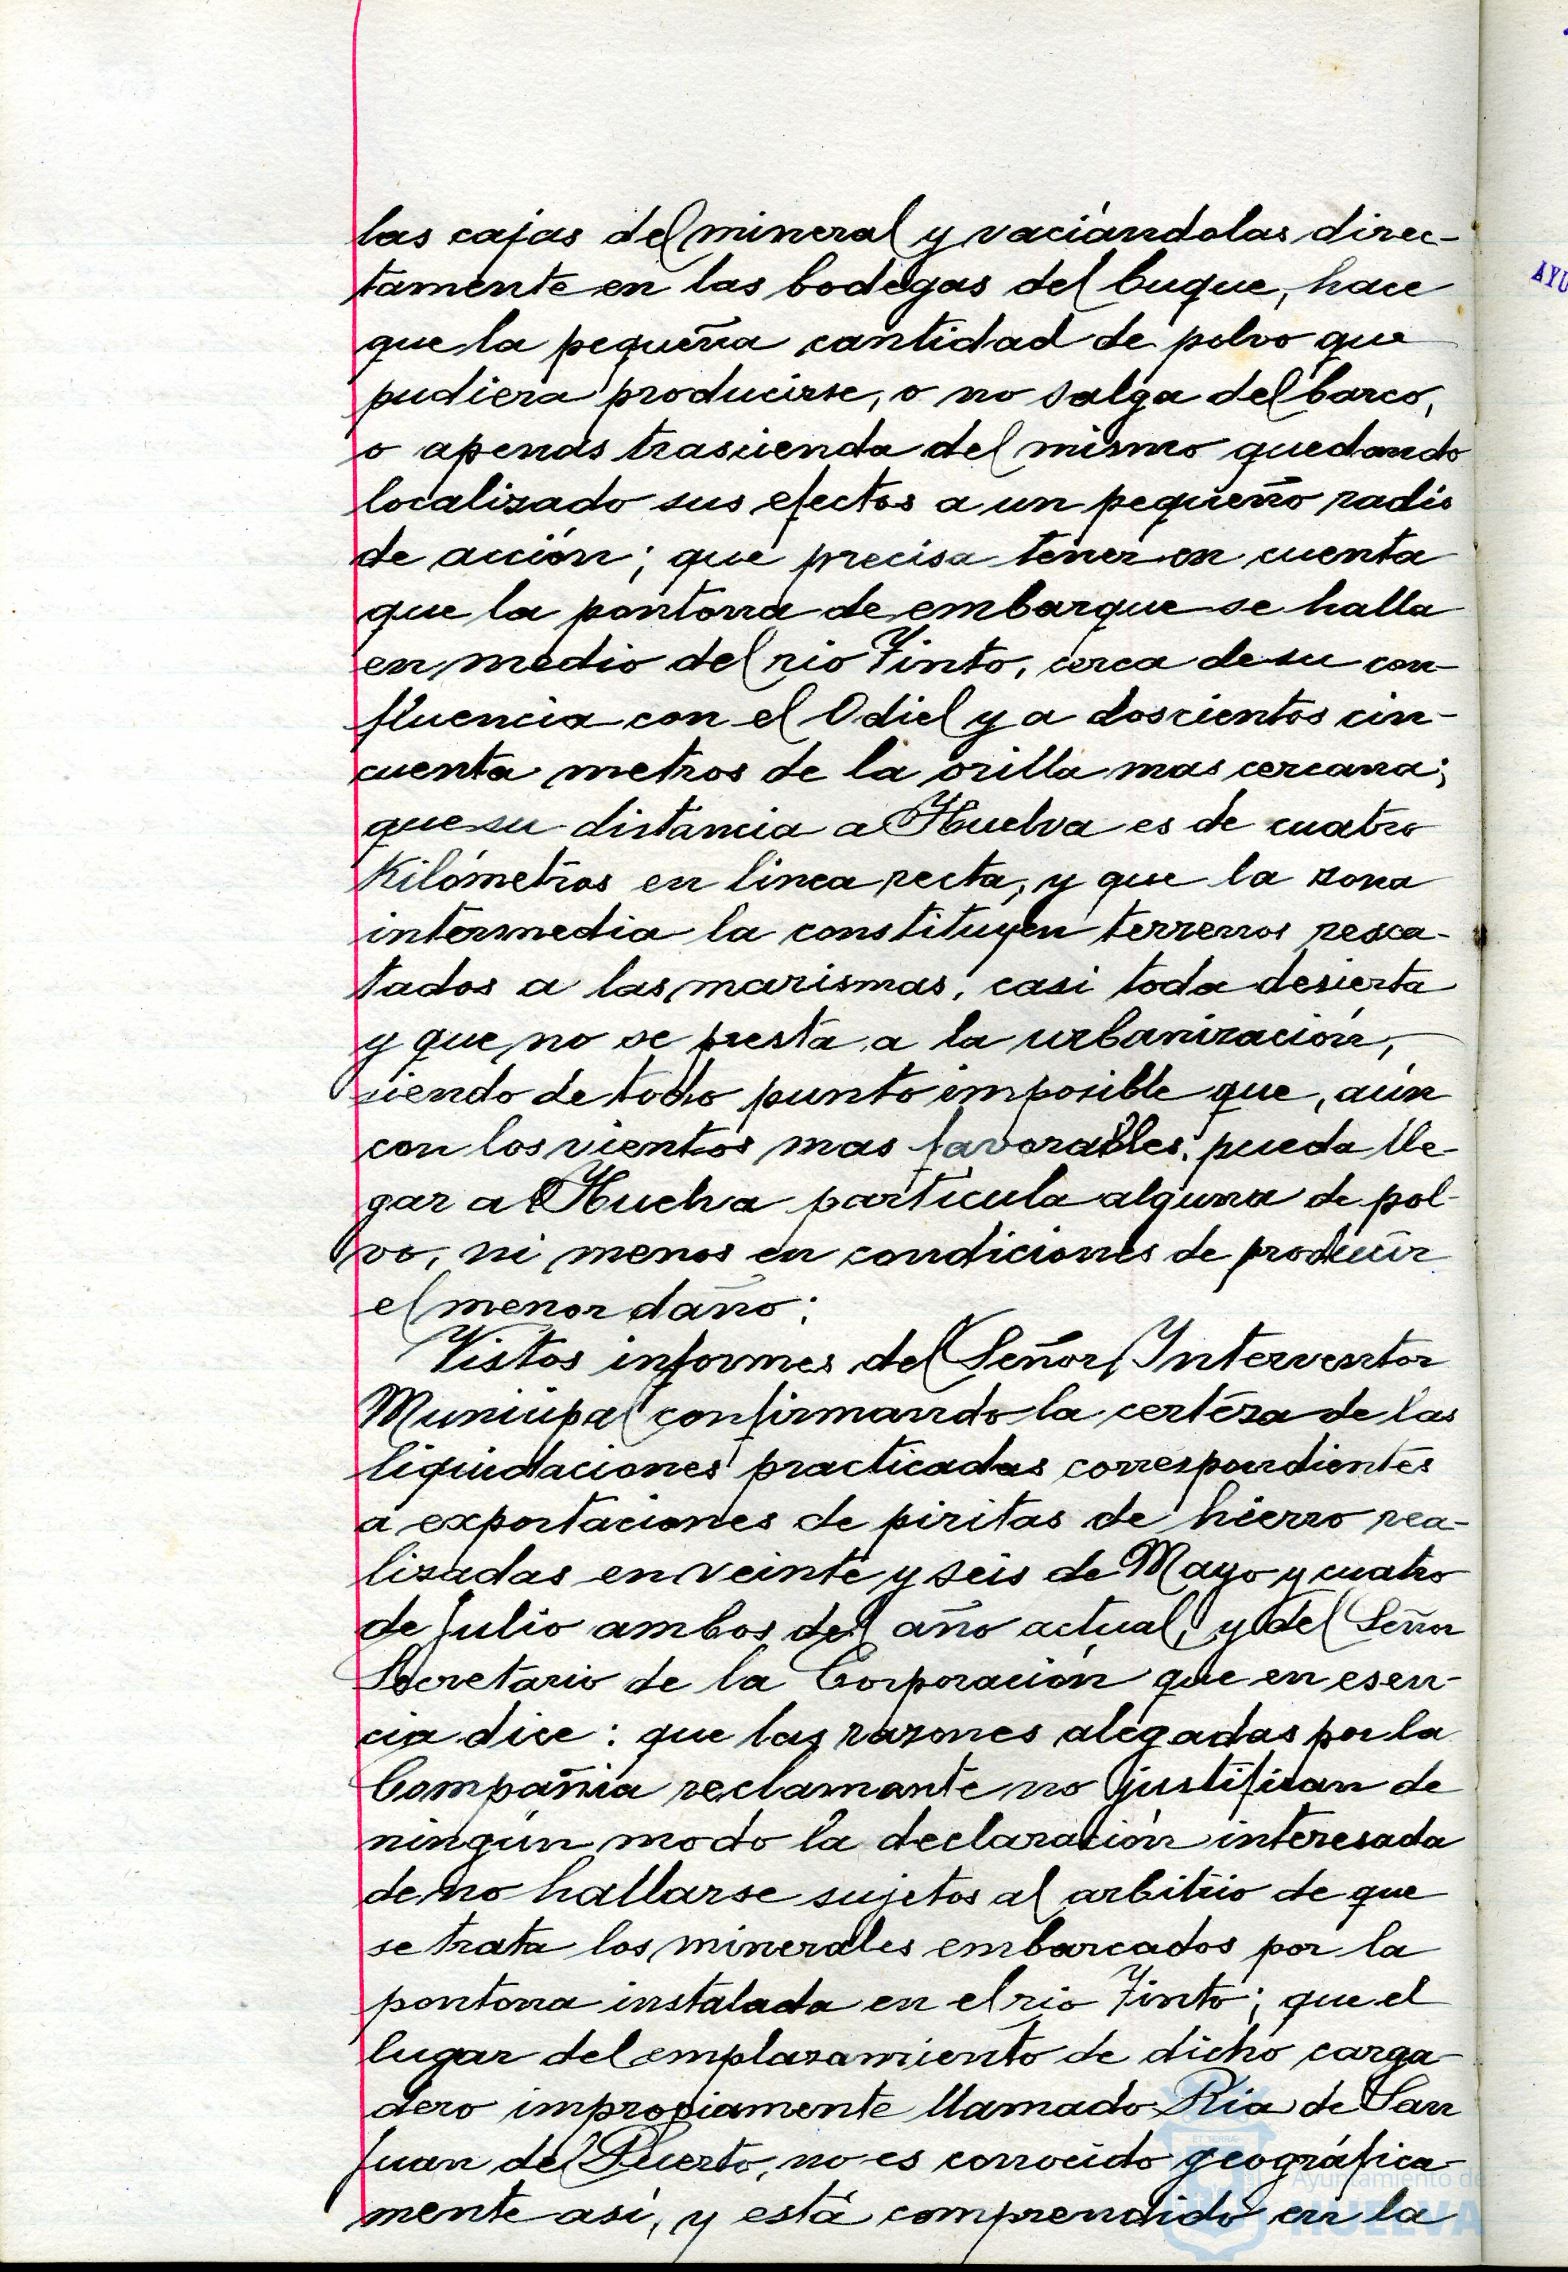 las cajas del mineral y vaciándolas direc-
tamente en las bodegas del buque, hace
que la pequeña cantidad de polvo que
pudiera producirse, o no salga del barco,
o apenas trascienda del mismo quedando
localizado sus efectos a un pequeño radio
de acción; que precisa tener en cuenta
que la pontona de embarque se halla
en medio del rio Tinto, cerca de su con-
fluencia con el Odiel y a doscientos cin-
cuenta metros de la orilla mas cercana;
que su distancia a Huelva es de cuatro
Kilómetros en linea recta, y que la zona
intermedia la constituyen terrenos resca-
tados a las marismas, casi toda desierta
y que no se presta a la urbanización,
siendo de todo punto imposible que, aún
con los vientos mas favorables, pueda lle-
gar a Huelva partícula alguna de pol-
vo, ni menos en condiciones de producir
el menor daño;
Vistos informes del Señor Interventor
Municipal confirmando la certeza de las
liquidaciones practicadas correspondientes
a exportaciones de piritas de hierro rea-
lizadas en veinte y seis de Mayo y cuatro
de Julio ambos del año actual, y del Señor
Secretario de la Corporación que en esen-
cia dice: que las razones alegadas por la
Compañia reclamante no justifican de
ningún modo la declaración interesada
de no hallarse sujetos al arbitrio de que
se trata los minerales embarcados por la
pontona instalada en el rio Tinto; que el
lugar del emplazamiento de dicho carga-
dero impropiamente llamado Ria de San
Juan del Puerto, no es conocido geográfica-
mente asi, y está comprendido en la
AYU
ET TERRÆ
Ayuntamiento de
HUELVA